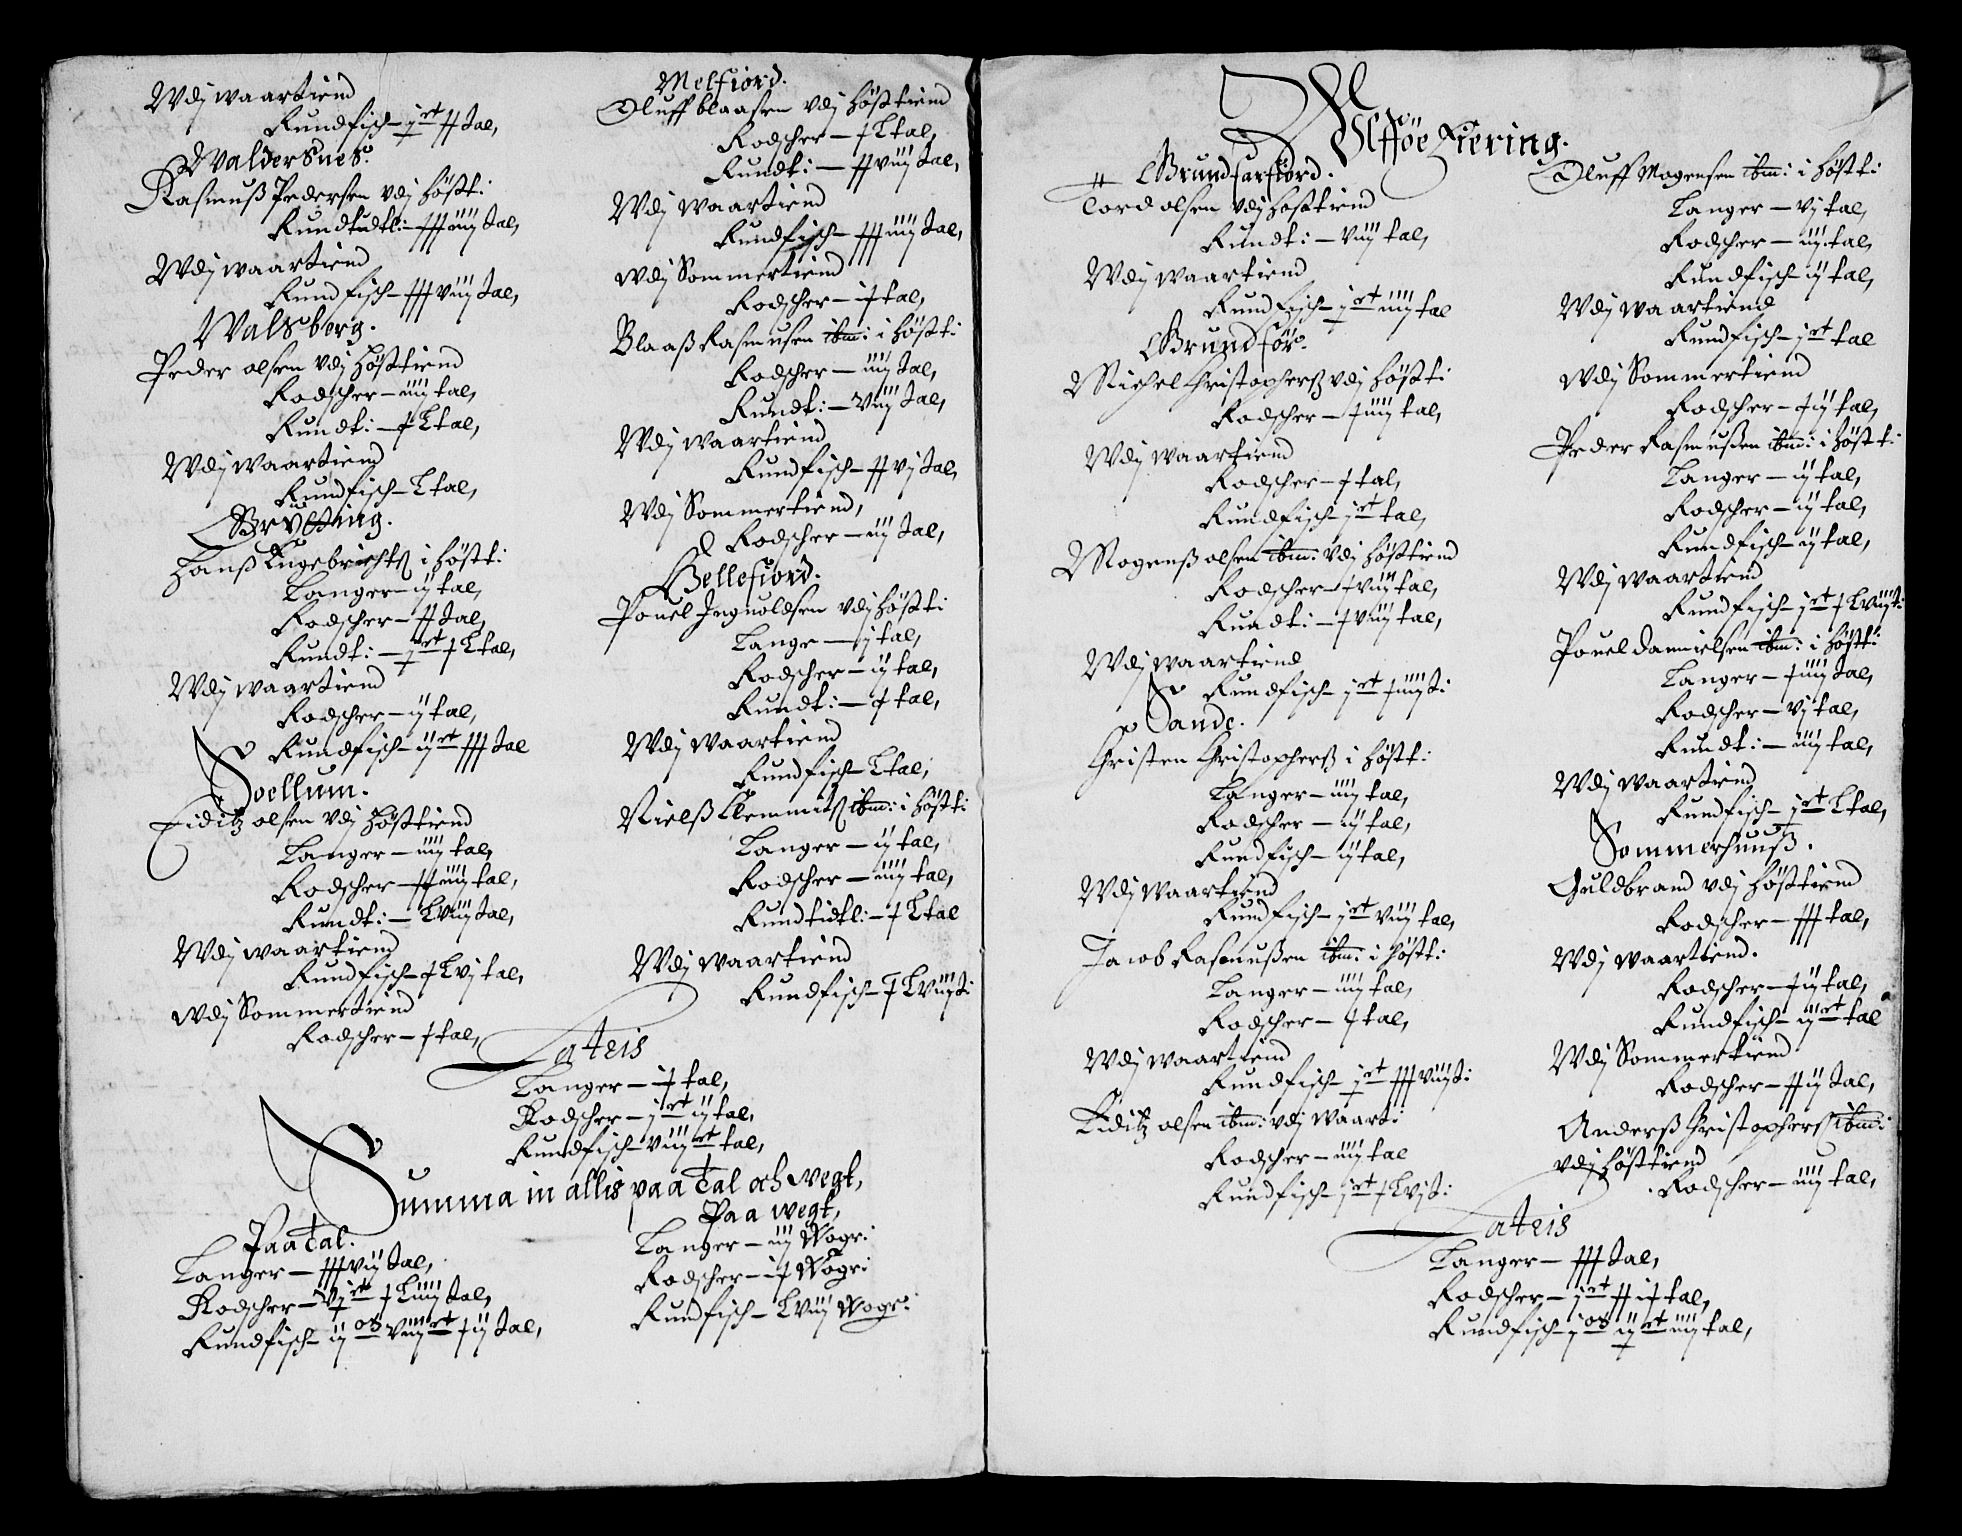 Wdj waartiend
Rundfisch – j rt # tal,
Waldersnes.
Rasmuß Pedersen vdj Höst:
Rundtidtl: – ### iiij tal,
Wdj waartiend
Rundfisch – ### viij tal,
Walsberg.
Peder olsen vdj Höstiend
Rodscher – iiij tal,
Rundt: – ɟ L tal,
Wdj waartiend
Rundfisch – L tal,
Brytting.
Hanß i Höst:
Langer – ij tal,
Rodscher – # tal,
Rundt: – j rt ɟ L tal,
Wdj waartiend
Rodscher – ij tal,
Rundfisch – ij rt ### tal
Soellum.
Eiditz olsen vdj Höstiend
Langer – iiij tal,
Rodscher – # iiij tal,
Rundt: – L viij tal,
Wdj waartiend
Rundfisch – ɟ L vj tal,
wdj Sommertiend
Rodscher – ɟ tal,
Melfiord.
Oluff blaasen vdj Höstiend
Rodscher – ɟ L tal,
Rundt: – # viij tal,
Wdj waartiend
Rundfisch – ### iiij tal,
wdj Sommertiend
Rodscher – iɟ tal,
Blaaß Rasmusen ibm: i Höst:
Rodscher – iiij tal,
Rundt: – viij tal,
Wdj waartiend
Rundfisch – # vj tal,
Wdj Sommertiend,
Rodscher – iiij tal,
Gellefiord.
Pouel Inguoldsen vdj Höst:
Lange – ij tal,
Rodscher – ij tal,
Rundt: – ɟ tal,
Wdj waartiend
Rundfisch – L tal,
Nielß Klemmits ibm: i Höst:
Langer – ij tal,
Rodscher – iiij tal,
Rundtidtl: – ɟ L tal
Wdj waartiend
Rundfisch – ɟ L viij t:
Lateris
Langer – iɟ tal,
Rodscher – j rt ij tal,
Rundfisch – viij rt tal,
Summa in allis paa Tal och wegt,
Paa Tal.
Langer – ### vij tal,
Rodscher – vj rt ɟ L iiij tal,
Rundfisch – ij os viij rt ɟ ij tal,
Paa wegt,
Langer – iij Wogr:
Rodscher – iɟ Wogr:
Rundfisch – L viij Wogr:
Alfföe Fiering.
Grundsarfiord.
Tord olsen vdj Höstiend
Rundt: – viij tal,
Wdj waartiend
Rundfisch – j rt iiij tal
Grundsör.
Michel Christophers vdj Höst:
Rodscher – ɟ iiij tal,
Wdj waartiend
Rodscher – ɟ tal,
Rundfisch – j rt tal,
Mogenß olsen ibm: vdj Höstiend
Rodscher – ɟ viij tal,
Rundt: – ɟ viij tal,
Wdj waartiend
Rundfisch – j rt ɟ iiij t:
Sande.
Christen Christophers i Höst:
Langer – iiij tal,
Rodscher – ij tal,
Rundfisch – ij tal,
Wdj waartiend
Rundfisch – j rt viij tal,
Jacob Rasmußen ibm: i Höst:
Langer – iiij tal,
Rodscher – ɟ tal,
Wdj waartiend
Rundfisch – j rt ### viij t:
Eiditz olsen ibm: vdj waart:
Rodscher – iiij tal
Rundfisch – j rt ɟ L vj t:
Oluff Mogensen ibm: i Höst:
Langer – vj tal,
Rodscher – iiij tal,
Rundfisch – ij tal,
Wdj waartiend
Rundfisch – j rt tal
wdj Sommertiend
Rodscher – ɟ ij tal,
Peder Rasmußen ibm: i Höst:
Langer – ij tal,
Rodscher – ij tal,
Rundfisch – ij tal,
Wdj waartiend
Rundfisch – j rt ɟ L viij t:
Pouel danielsen ibm: i Höst:
Langer – ɟ iiij tal,
Rodscher – vj tal,
Rundt: – iiij tal,
Wdj waartiend
Rundfisch – j rt L tal,
Sommerhuuß.
Guldbrand vdj Höstiend
Rodscher – ### tal,
Wdj waartiend.
Rodscher – ɟ ij tal,
Rundfisch – ij rt tal
Wdj Sommertiend
Rodscher – # ij tal,
Anderß Christophers ibm:
vdj Höstiend
Rodscher – iiij tal,
Lateris
Langer – ### tal,
Rodscher – j rt # iɟ tal,
Rundfisch – j os ij rt iiij tal,